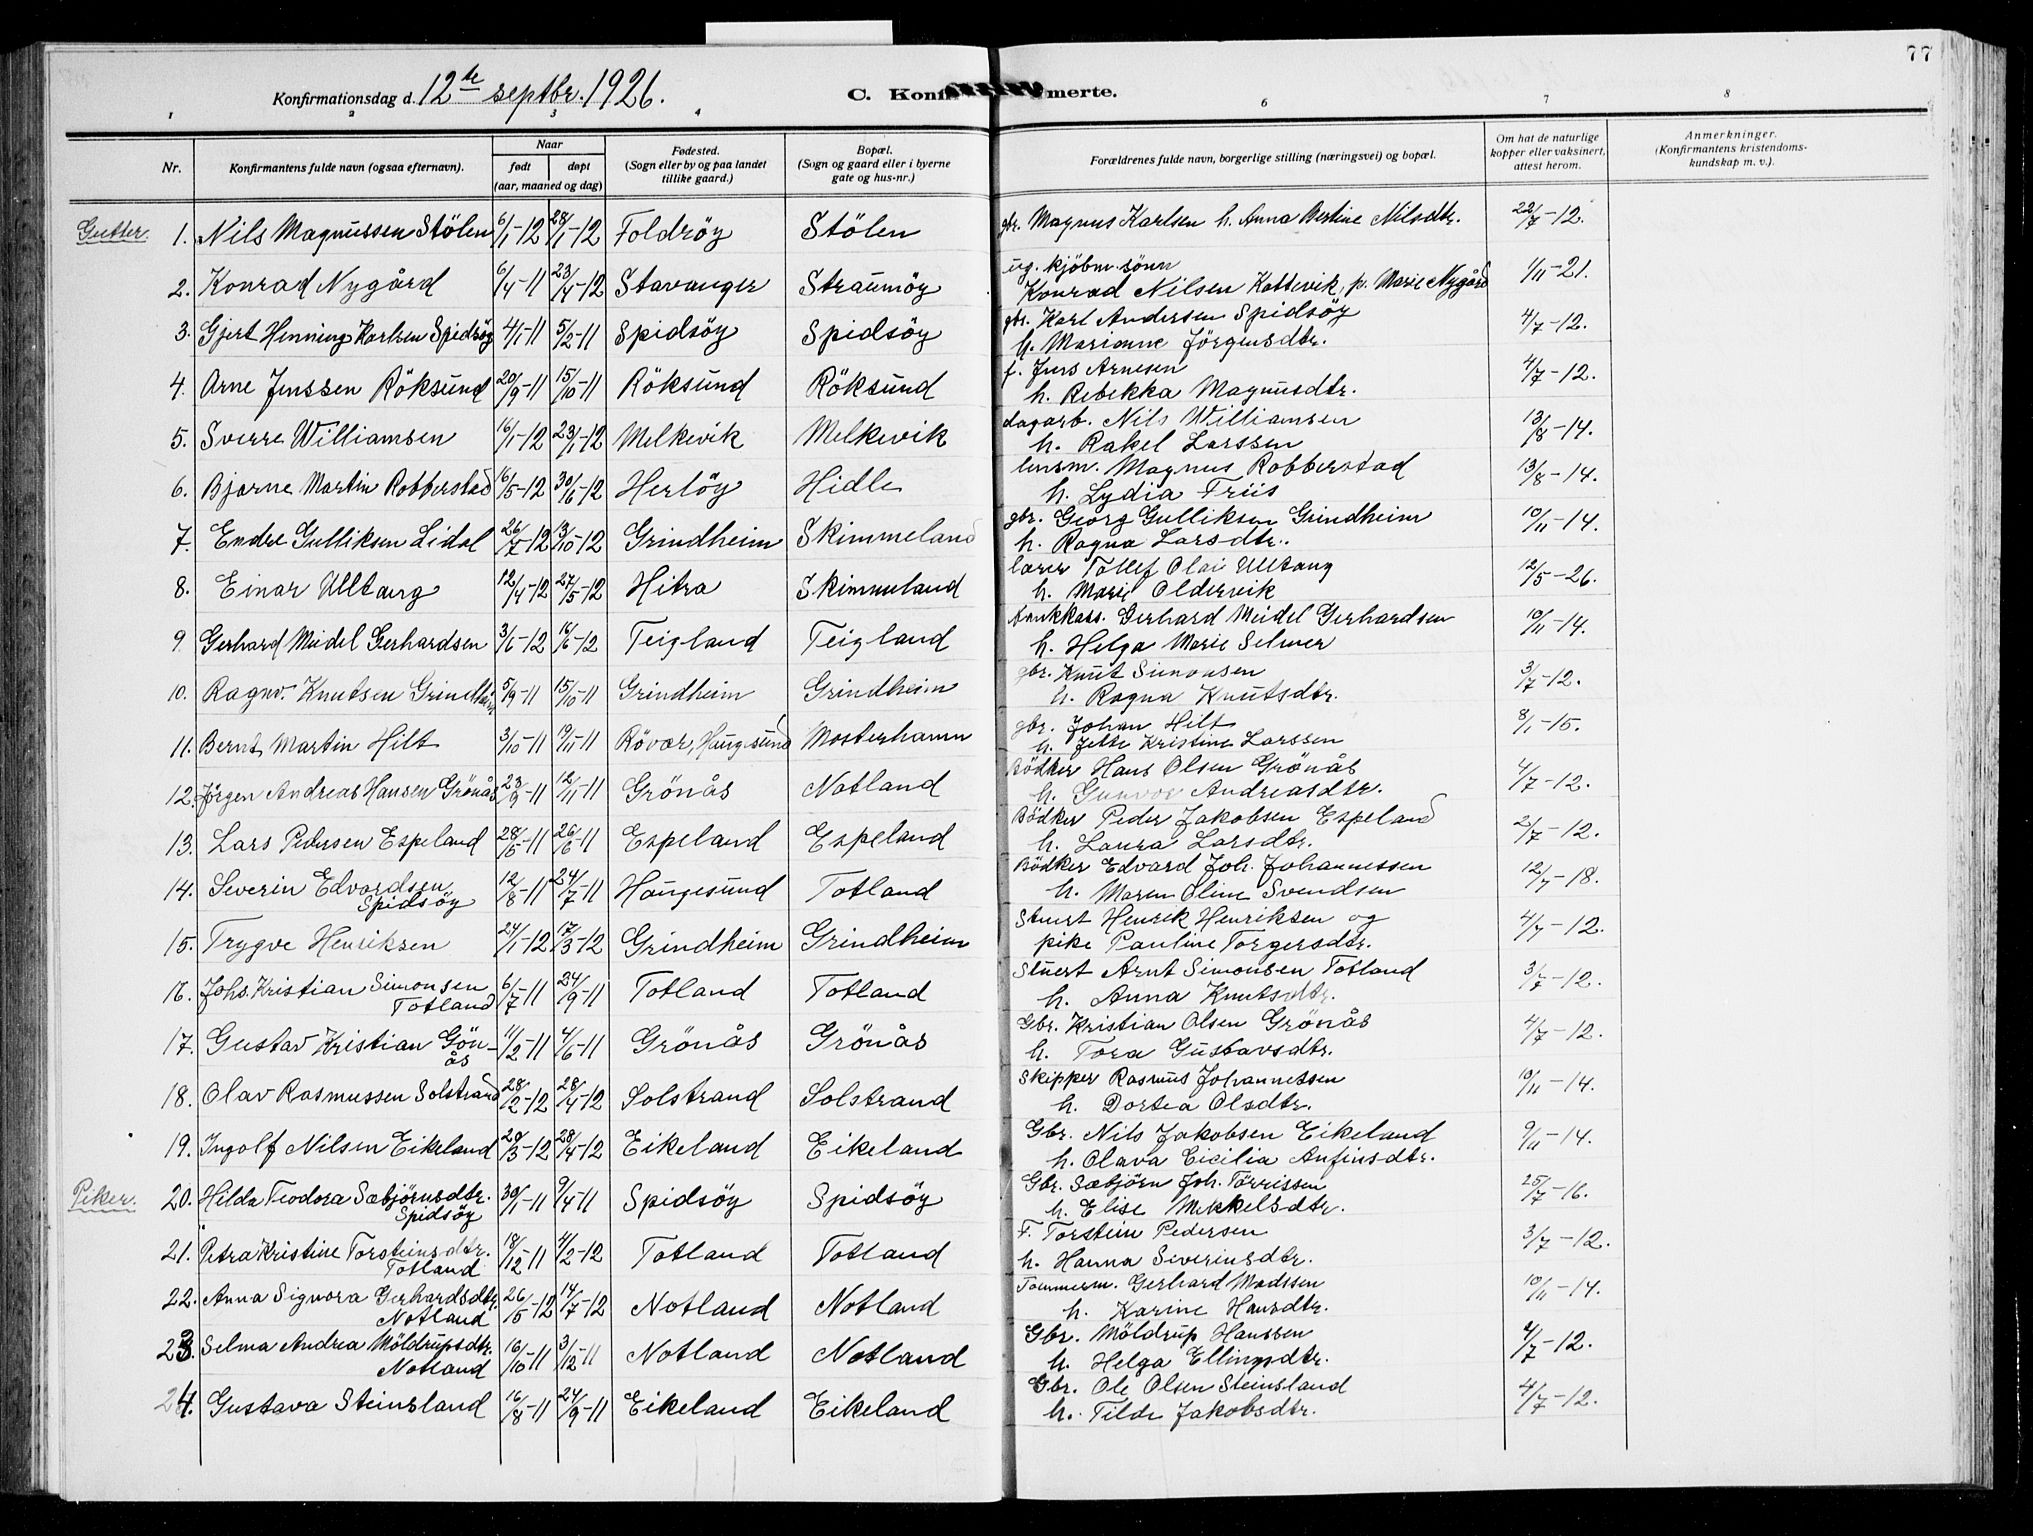 77
Konfirmationsdag d. 12te septbr. 1926.
C. Konfi merte.
1 2 3 4 6 7 8
Nr.
Konfirmantens fulde navn (ogsaa efternavn).
Naar
født døpt
(aar, maaned og dag)
Fødested.
(Sogn eller by og paa landet
tillike gaard.)
Bopæl.
(Sogn og gaard eller i byerne
gate og hus-nr.)
Forældrenes fulde navn, borgerlige stilling (næringsvei) og bopæl.
Om hat de naturlige
kopper eller vaksinert,
attest herom.
Anmerkninger.
(Konfirmantens kristendoms-
kundskap m. v.).
Gutter.
1. Nils Magnussen Stölen 6/1-12 28/1-12 Foldröy Stölen gbr. Magnus Karlsen h. Anna Bertine Nilsdtr. 22/7-12.
2. Konrad Nygård 6/4-11 23/4-12 Stavanger Straumöy ug. kjöbm. sönn 1/11-21.
Konrad Nilsen Kattevik, p. Marie Nygård
3. Gjert Henning Karlsen Spidsöy 4/1-11 5/2-11 Spidsöy Spidsöy gbr. Karl Andersen Spidsöy 4/7-12.
h. Marianne Jörgensdtr.
4. Arne Jenssen Röksund 20/9-11 15/10-11 Röksund Röksund f. Jens Arnesen 4/7-12.
h. Rebekka Magnusdtr.
5. Sverre Williamsen 16/1-12 23/1-12 Melkevik Melkevik dagarb. Nils Williamsen 13/8-14.
h. Rakel Larssen
6. Bjarne Martin Robberstad 16/5-12 30/6-12 Hertöy Hidle lensm. Magnus Robberstad 13/8-14.
h. Lydia Friis
7. Endre Gulliksen Lidal 26/7-12 13/10-12 Grindheim Skimmeland gbr. Georg Gulliksen Grindheim 10/11-14.
h. Ragna Larsdtr.
8. Einar Ulltang 12/4-12 27/5-12 Hitra Skimmeland lærer Tollef Olai Ulltang 12/5-26.
h. Marie Oldervik
9 Gerhard Meidel Gerhardsen 3/6-12 16/6-12 Teigland Teigland bankkass. Gerhard Meidel Gerhardsen 10/11-14.
h. Helga Marie Selmer
10. Ragnv. Knutsen Grindheim 5/9-11 15/10-11 Grindheim Grindheim gbr. Knut Simonsen 3/7-12.
h. Ragna Knutsdtr.
11. Bernt Martin Hilt 3/10-11 19/11-11 Rövær, Haugesund Mosterhamn gbr. Johan Hilt 8/1-15.
h. Jette Kristine Larssen
12. Jörgen Andreas Hansen Grönås 23/9-11 12/11-11 Grönås Notland Bödker Hans Olsen Grönås 4/7-12.
h. Gunvor Andreasdtr.
13. Lars Pedersen Espeland 28/5-11 26/6-11 Espeland Espeland Bödker Peder Jakobsen Espeland 2/7-12.
h. Laura Larsdtr.
14. Severin Edvardsen 12/8-11 24/7-11 Haugesund Totland Bödker Edvard Joh. Johannessen 12/7-18.
Spidsöy h. Maren Oline Svendsen
15. Trygve Henriksen 24/1-12 17/3-12 Grindheim Grindheim Stuert Henrik Henriksen og 4/7-12.
pike Pauline Torgersdtr.
16. Johs. Kristian Simonsen 6/7-11 24/9-11 Totland Totland Stuert Arnt Simonsen Totland 3/7-12.
Totland h. Anna Knutsdtr.
17. Gustav Kristian Gön- 11/2-11 4/6-11 Grönås Grönås Gbr. Kristian Olsen Grönås 4/7-12.
ås h. Tora Gustavsdtr.
18. Olav Rasmussen Solstrand 28/2-12 28/4-12 Solstrand Solstrand Skipper Rasmus Johannessen 10/11-14.
h. Dortea Olsdtr.
19. Ingolf Nilsen Eikeland 29/3-12 28/4-12 Eikeland Eikeland Gbr. Nils Jakobsen Eikeland 9/11-14.
h. Olava Cicilia Anfinsdtr.
Piker.
20. Hilda Teodora Sæbjörnsdtr. 30/1-11 9/4-11 Spidsöy Spidsöy Gbr. Sæbjörn Joh. Törrissen 25/7-16.
Spidsöy h. Elise Mikkelsdtr.
21. Petra Kristine Torsteinsdtr. 18/12-11 4/2-12 Totland Totland F. Torstein Pedersen 3/7-12.
Totland h. Hanna Severinsdtr.
22. Anna Signora Gerhardsdtr. 26/5-12 14/7-12 Notland Notland Tømmerm. Gerhard Madssen 10/11-14.
Notland h. Karine Hansdtr.
23. Selma Andrea Möldrupsdtr. 16/10-11 3/12-11 Notland Notland Gbr. Möldrup Hanssen 4/7-12.
Notland h. Helga Ellingsdtr.
24. Gustava Steinsland 16/8-11 24/9-11 Eikeland Eikeland Gbr. Ole Olsen Steinsland 4/7-12.
h. Tilde Jakobsdtr.